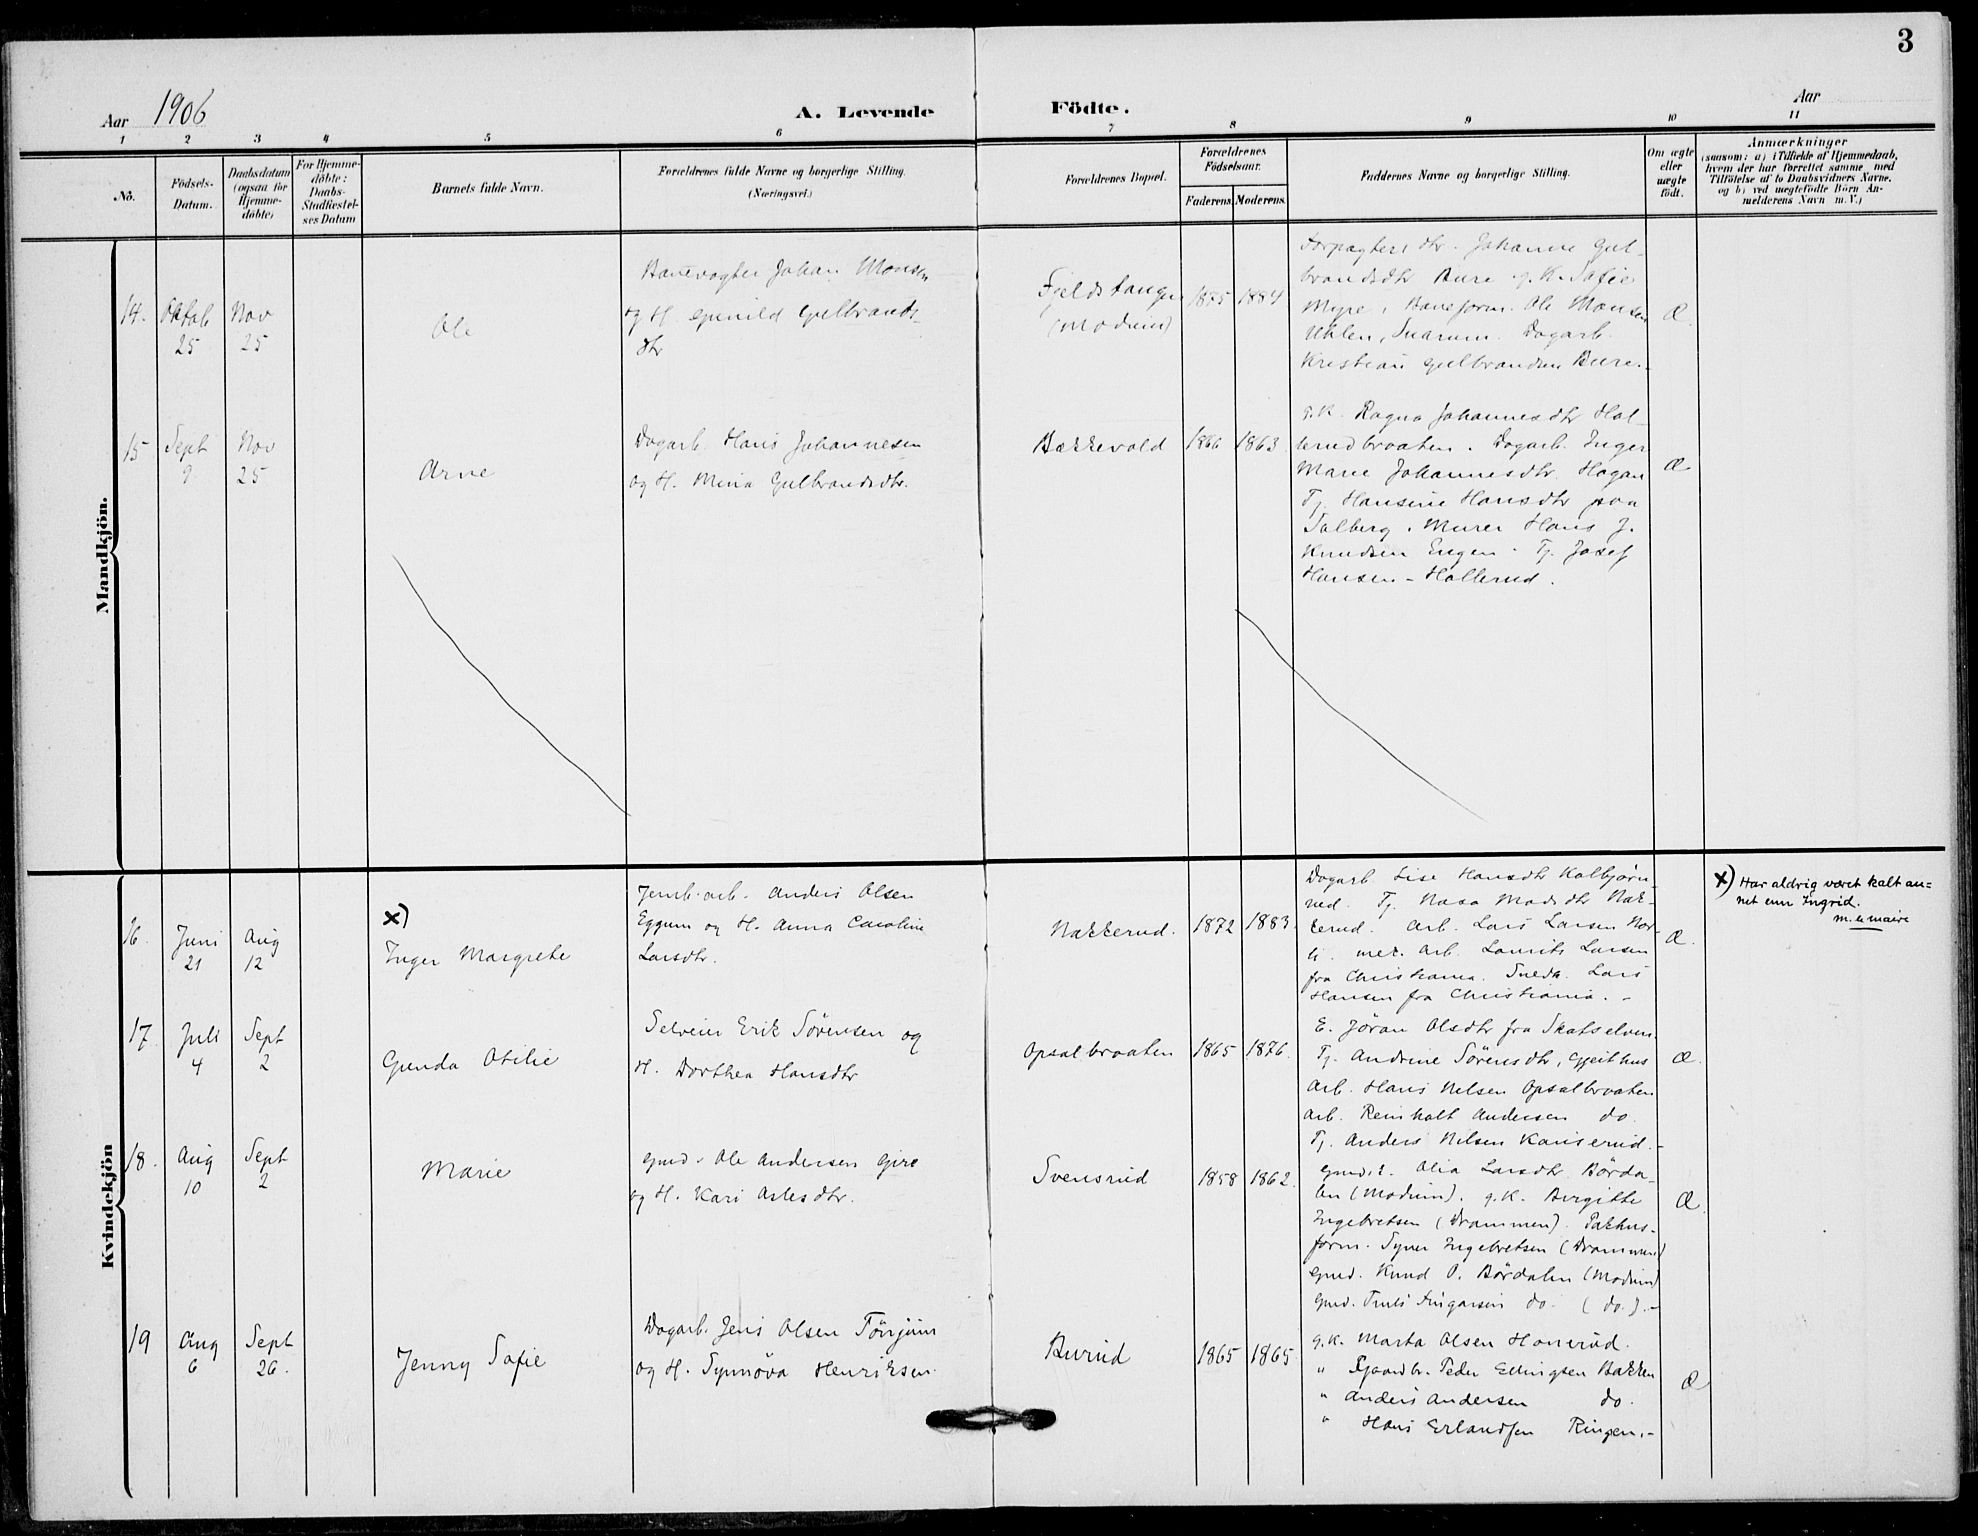 3
Aar 1906
A. Levende Födte.
Aar
1 2 3 4 5 6 7 8 9 10 11
No.
Födsels-
Datum.
Daabsdatum
(ogsaa for
Hjemme-
döbte)
For Hjemme-
döbte:
Daabs-
Stadfæstel-
ses Datum
Barnets fulde Navn.
Forældrenes fulde Navne og borgerlige Stilling.
(Næringsvei.)
Forældrenes Bopæl.
Forældrenes
Födselsaar.
Faderens. Moderens.
Faddernes Navne og borgerlige Stilling.
Om ægte
eller
uægte
födt.
Anmærkninger
(saasom: a) i Tilfælde af Hjemmedaab,
hvem der har forrettet samme med
Tilföielse af to Daabsvidners Navne.
og b) ved uægtefödte Börn An-
melderens Navn m. V.)
Mandkjön.
14.
Oktob
25
Nov
25
Ole
Banevogter Johan Monsen
og H. Gunild Gulbrands-
dtr
Fjeldstangen
(Modum)
1875
1884
Forpagters dtr. Johanne Gul-
brandsdtr Bure g.K. Sofie
Myre, Baneform. Ole Monsen
Uhlen, Snarum. Dagarb.
Kristian Gulbrandsen Bure.
Æ.
15
Sept
9
Nov
25
Arne
Dagarb. Hans Johannesen
og H. Mina Gulbrandsdtr.
Bækkevold
1866
1863
g.K. Ragna Johannesdtr Hal-
lerudbraaten. Dagarb. Inger
Marie Johannesdtr. Hagan
Tj. Hansine Hansdtr paa
Solberg. Murer Hans J.
Knudsen Engen. Tj. Josef
Hansen - Hallerud.
Æ
Kvindekjön
16.
Juni
21
Aug
12
x)
Inger Margrete
Jernb.arb. Anders Olsen
Eggum og H. Anna Caroline
Larsdtr.
Nakkerud.
1872
1883.
Dagarb. Lise Hansdtr Kolbjörn-
rud. Tj. Mads dtr Nak-
kerud. Arb. Lars Larsen Nor-
li. mek. Arb. Laurits Larsen
fra Christiania. Snedk. Lars
Hansen fra Christiania. -
Æ.
x) Har aldrig været kalt an=
net enn Ingrid.
17.
Juli
4
Sept
2
Gunda Otilie
Selveier Erik Sörensen og
H. Dorthea Hansdtr
Opsalbraaten
1865
1876.
E. Jöran Olsdtr fra Skotselven.
Tj. Andrine Sörensdtr, Gjeithus
Arb. Hans Nelsen Opsalbraaten
Arb. Reinholt Andersen do.
Tj. Anders Nilsen Kanserud.-
Æ.
18.
Aug
10
Sept
2
Marie
Gmd. Ole Andersen Gire
og H. Kari Aslesdtr.
Svensrud
1858
1862.
Gmd.E. Olia Larsdtr Börda-
len (Modum). g.K. Birgitte
Ingebretsen (Drammen). Pakhus-
form. Syver Ingebretsen (Drammen)
Gmd. Knud O. Bördalen (Modum)
Gmd. Truls do. (do.).-
Æ.
19
Aug
6
Sept
26.
Jenny Sofie
Dagarb. Jens Olsen Tönjum
og H. Synnöva Henriksen.
Burud
1865
1865.
g.K. Marta Olsen Honerud.
" Gaardbr. Peder Ellingsen Bakken
" Anders Andersen do.
" Hans Erlandsen Ringen.-
Æ